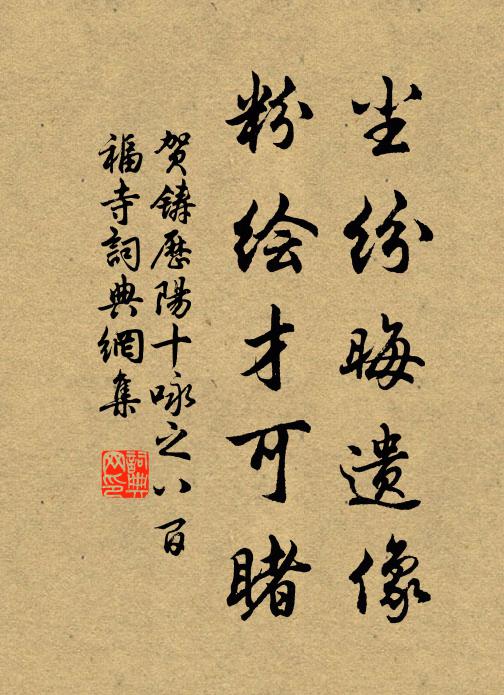 尘纷晦遗像
粉绘才可睹
贺铸歷陽十咏之八百
福寺詞典網集
詞典
网印